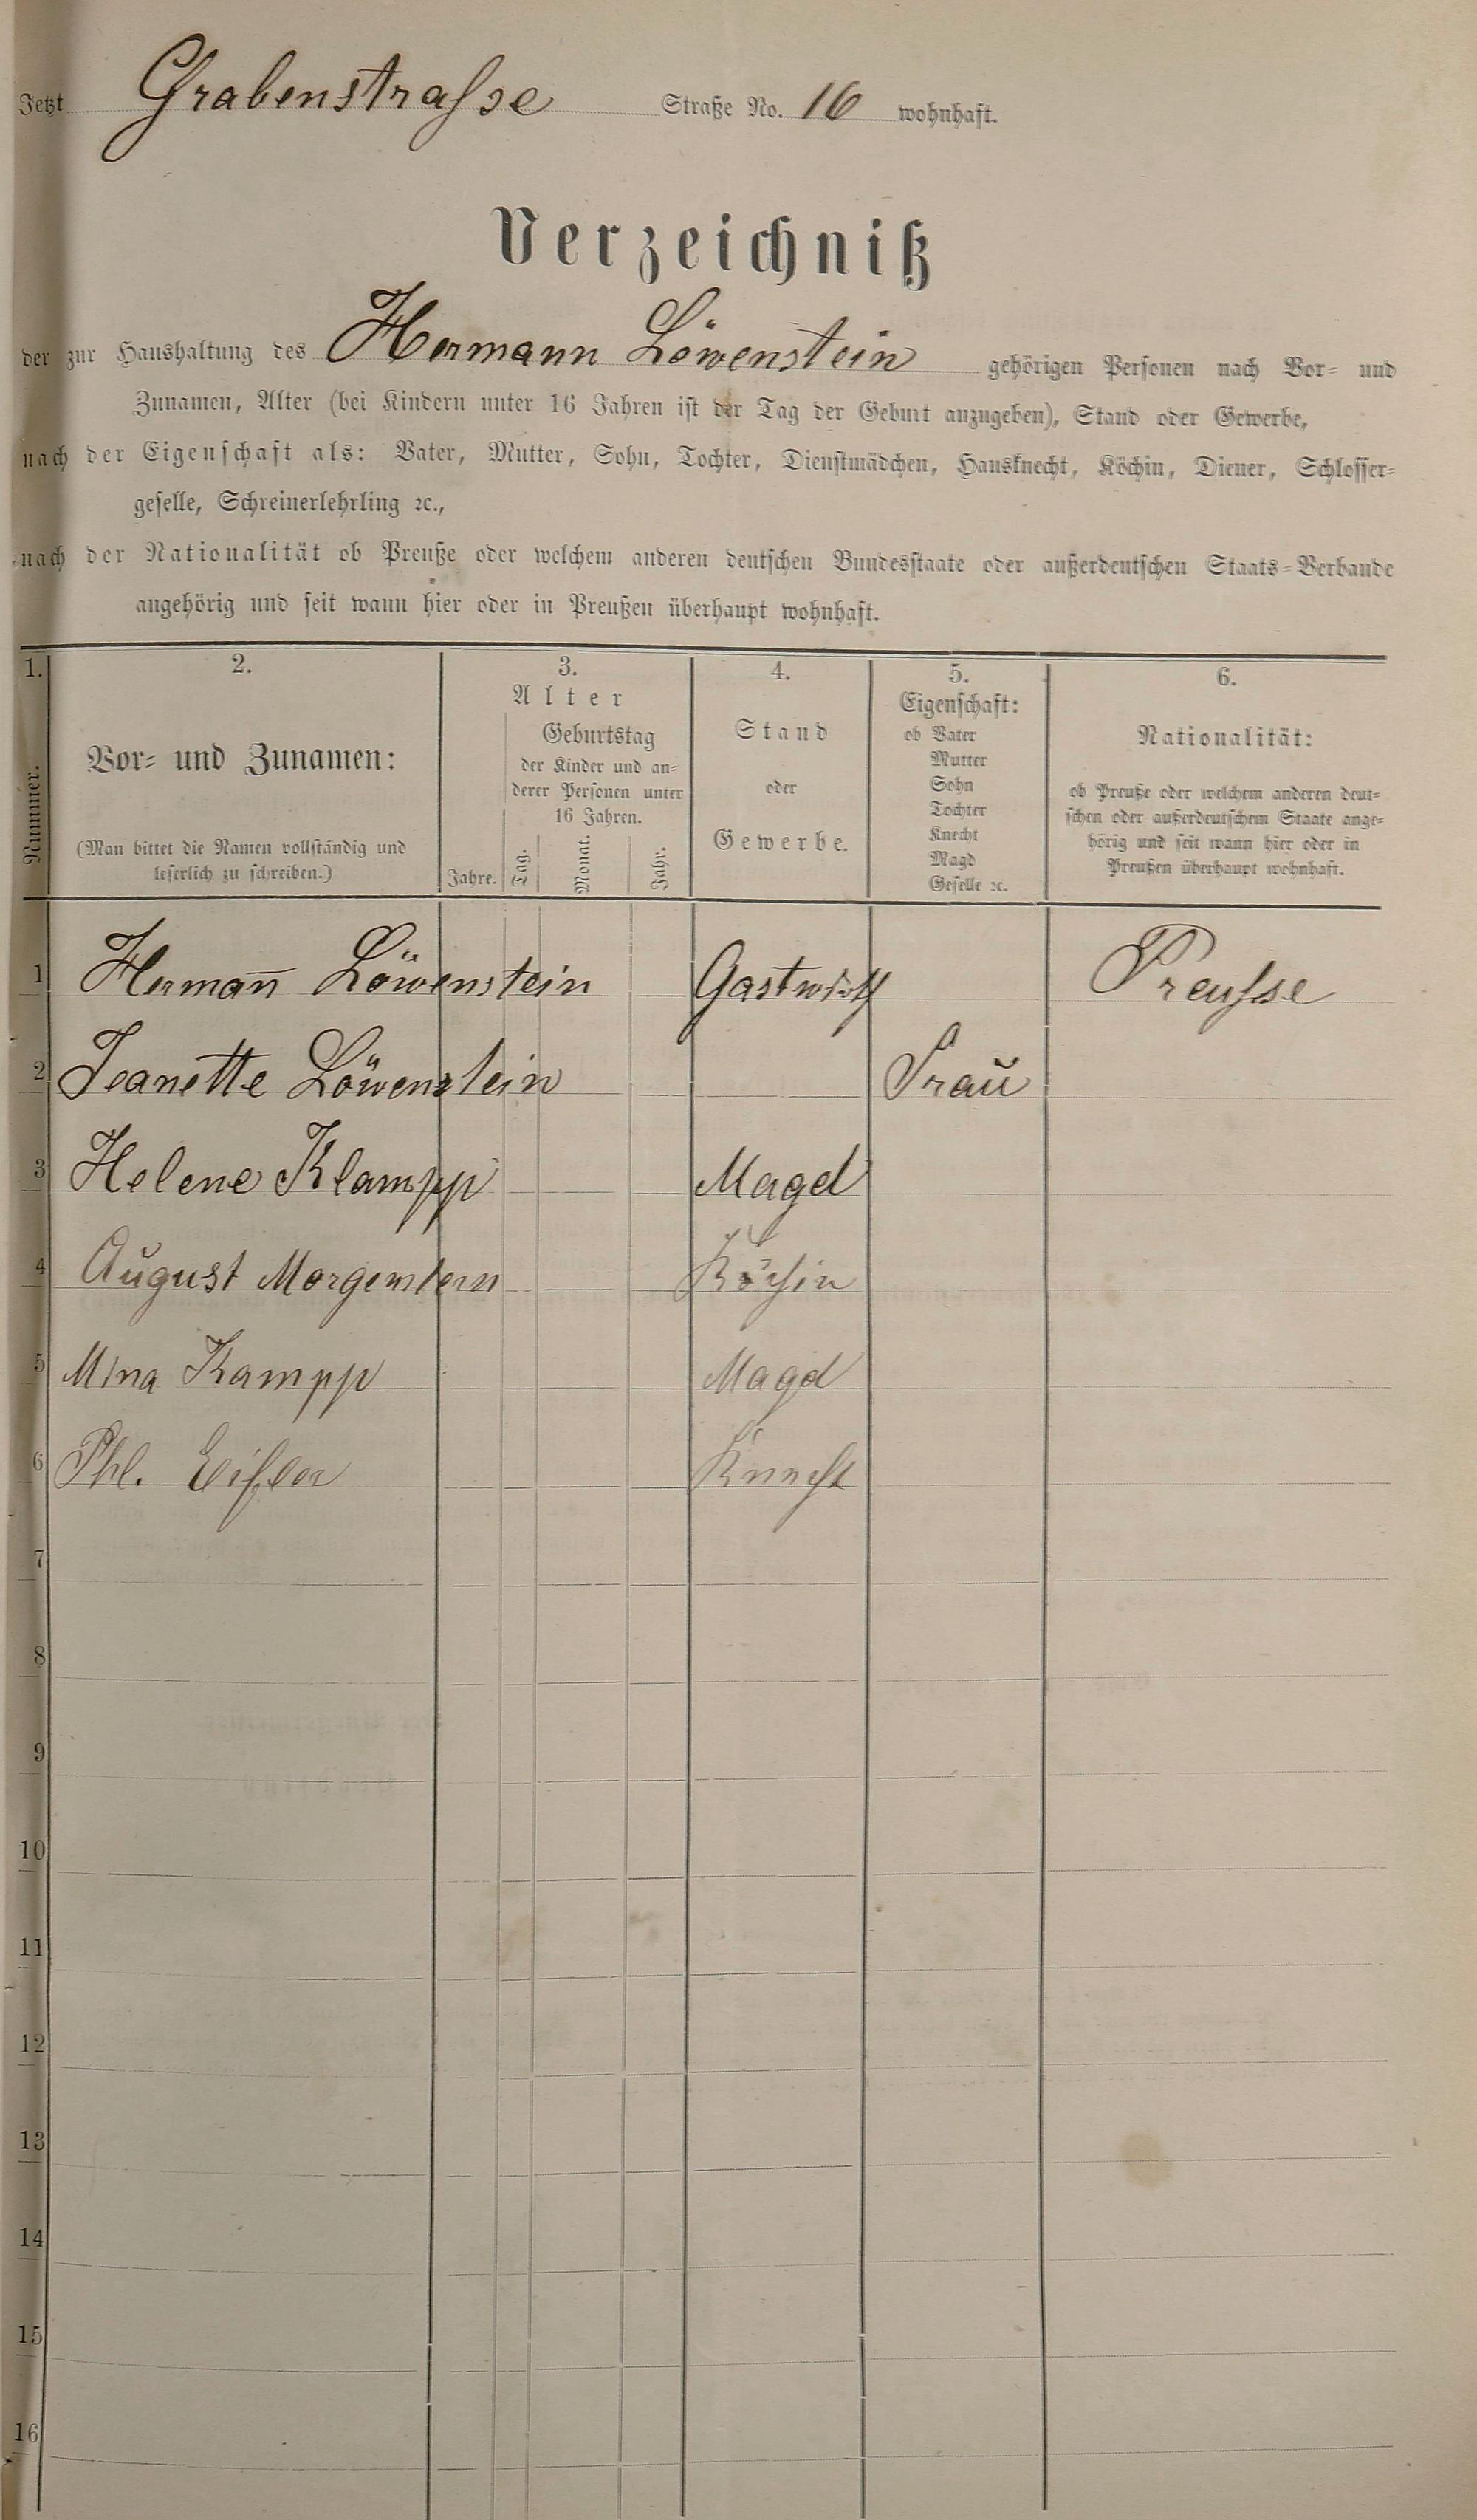 Jetzt Grabenstraße Straße No. 16 wohnhaft.
Verzeichniß
der zur Haushaltung des Hermann Löwenstein gehörigen Personen nach Vor- und
Zunamen, Alter (bei Kindern unter 16 Jahren ist der Tag der Geburt anzugeben), Stand oder Gewerbe,
nach der Eigenschaft als: Vater, Mutter, Sohn, Tochter, Dienstmädchen, Hausknecht, Köchin, Diener, Schlosser-
geselle, Schreinerlehrling ꝛc.,
nach der Nationalität ob Preuße oder welchem anderen deutschen Bundesstaate oder außerdeutschen Staats-Verbande
angehörig und seit wann hier oder in Preußen überhaupt wohnhaft.
1.
Nummer.
2.
Vor- und Zunamen:
(Man bittet die Namen vollständig und
leserlich zu schreiben.)
3.
Alter
Geburtstag
der Kinder und an-
derer Personen unter
16 Jahren.
Jahre. Tag. Monat. Jahr.
4.
Stand
oder
Gewerbe.
5.
Eigenschaft:
ob Vater
Mutter
Sohn
Tochter
Knecht
Magd
Geselle ꝛc.
6.
Nationalität:
ob Preuße oder welchem anderen deut-
schen oder außerdeutschem Staate ange-
hörig und seit wann hier oder in
Preußen überhaupt wohnhaft.
1 Herman̄ Löwenstein Gastwirth Preuße
2 Jeanette Löwenstein Frau
3 Helene Klampp Magd
4 August Morgenstern Köchin
5 Mina Kampp Magd
6 Phl. Knecht
7
8
9
10
11
12
13
14
15
16